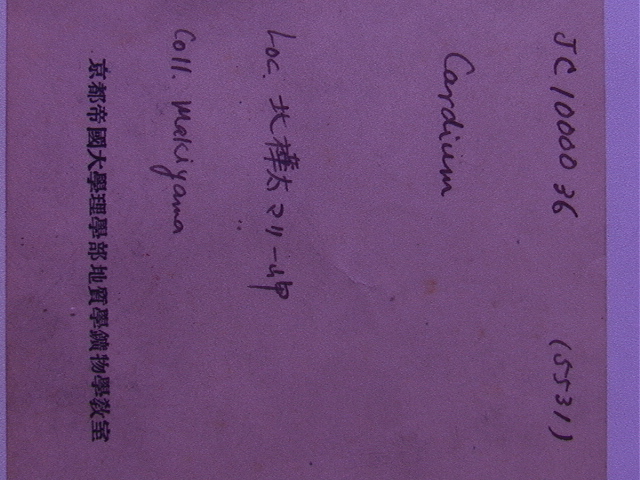 JC1000036 (5531)
Cardium
Loc. 北樺太マリー岬
Coll. Makiyama
京都帝國大學理學部地質學鑛物學教室